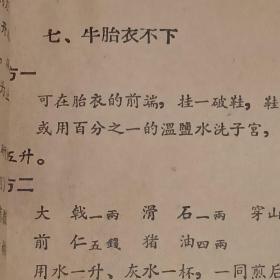 七、牛胎衣不下
方一
可在胎衣的前端，挂一破鞋，鞋
或用百分之一的溫鹽水洗子宮，
五升。
方二
大戟一兩 滑石一兩 穿山
前仁五錢 猪油四兩
用水一升、灰水一杯，一同煎后